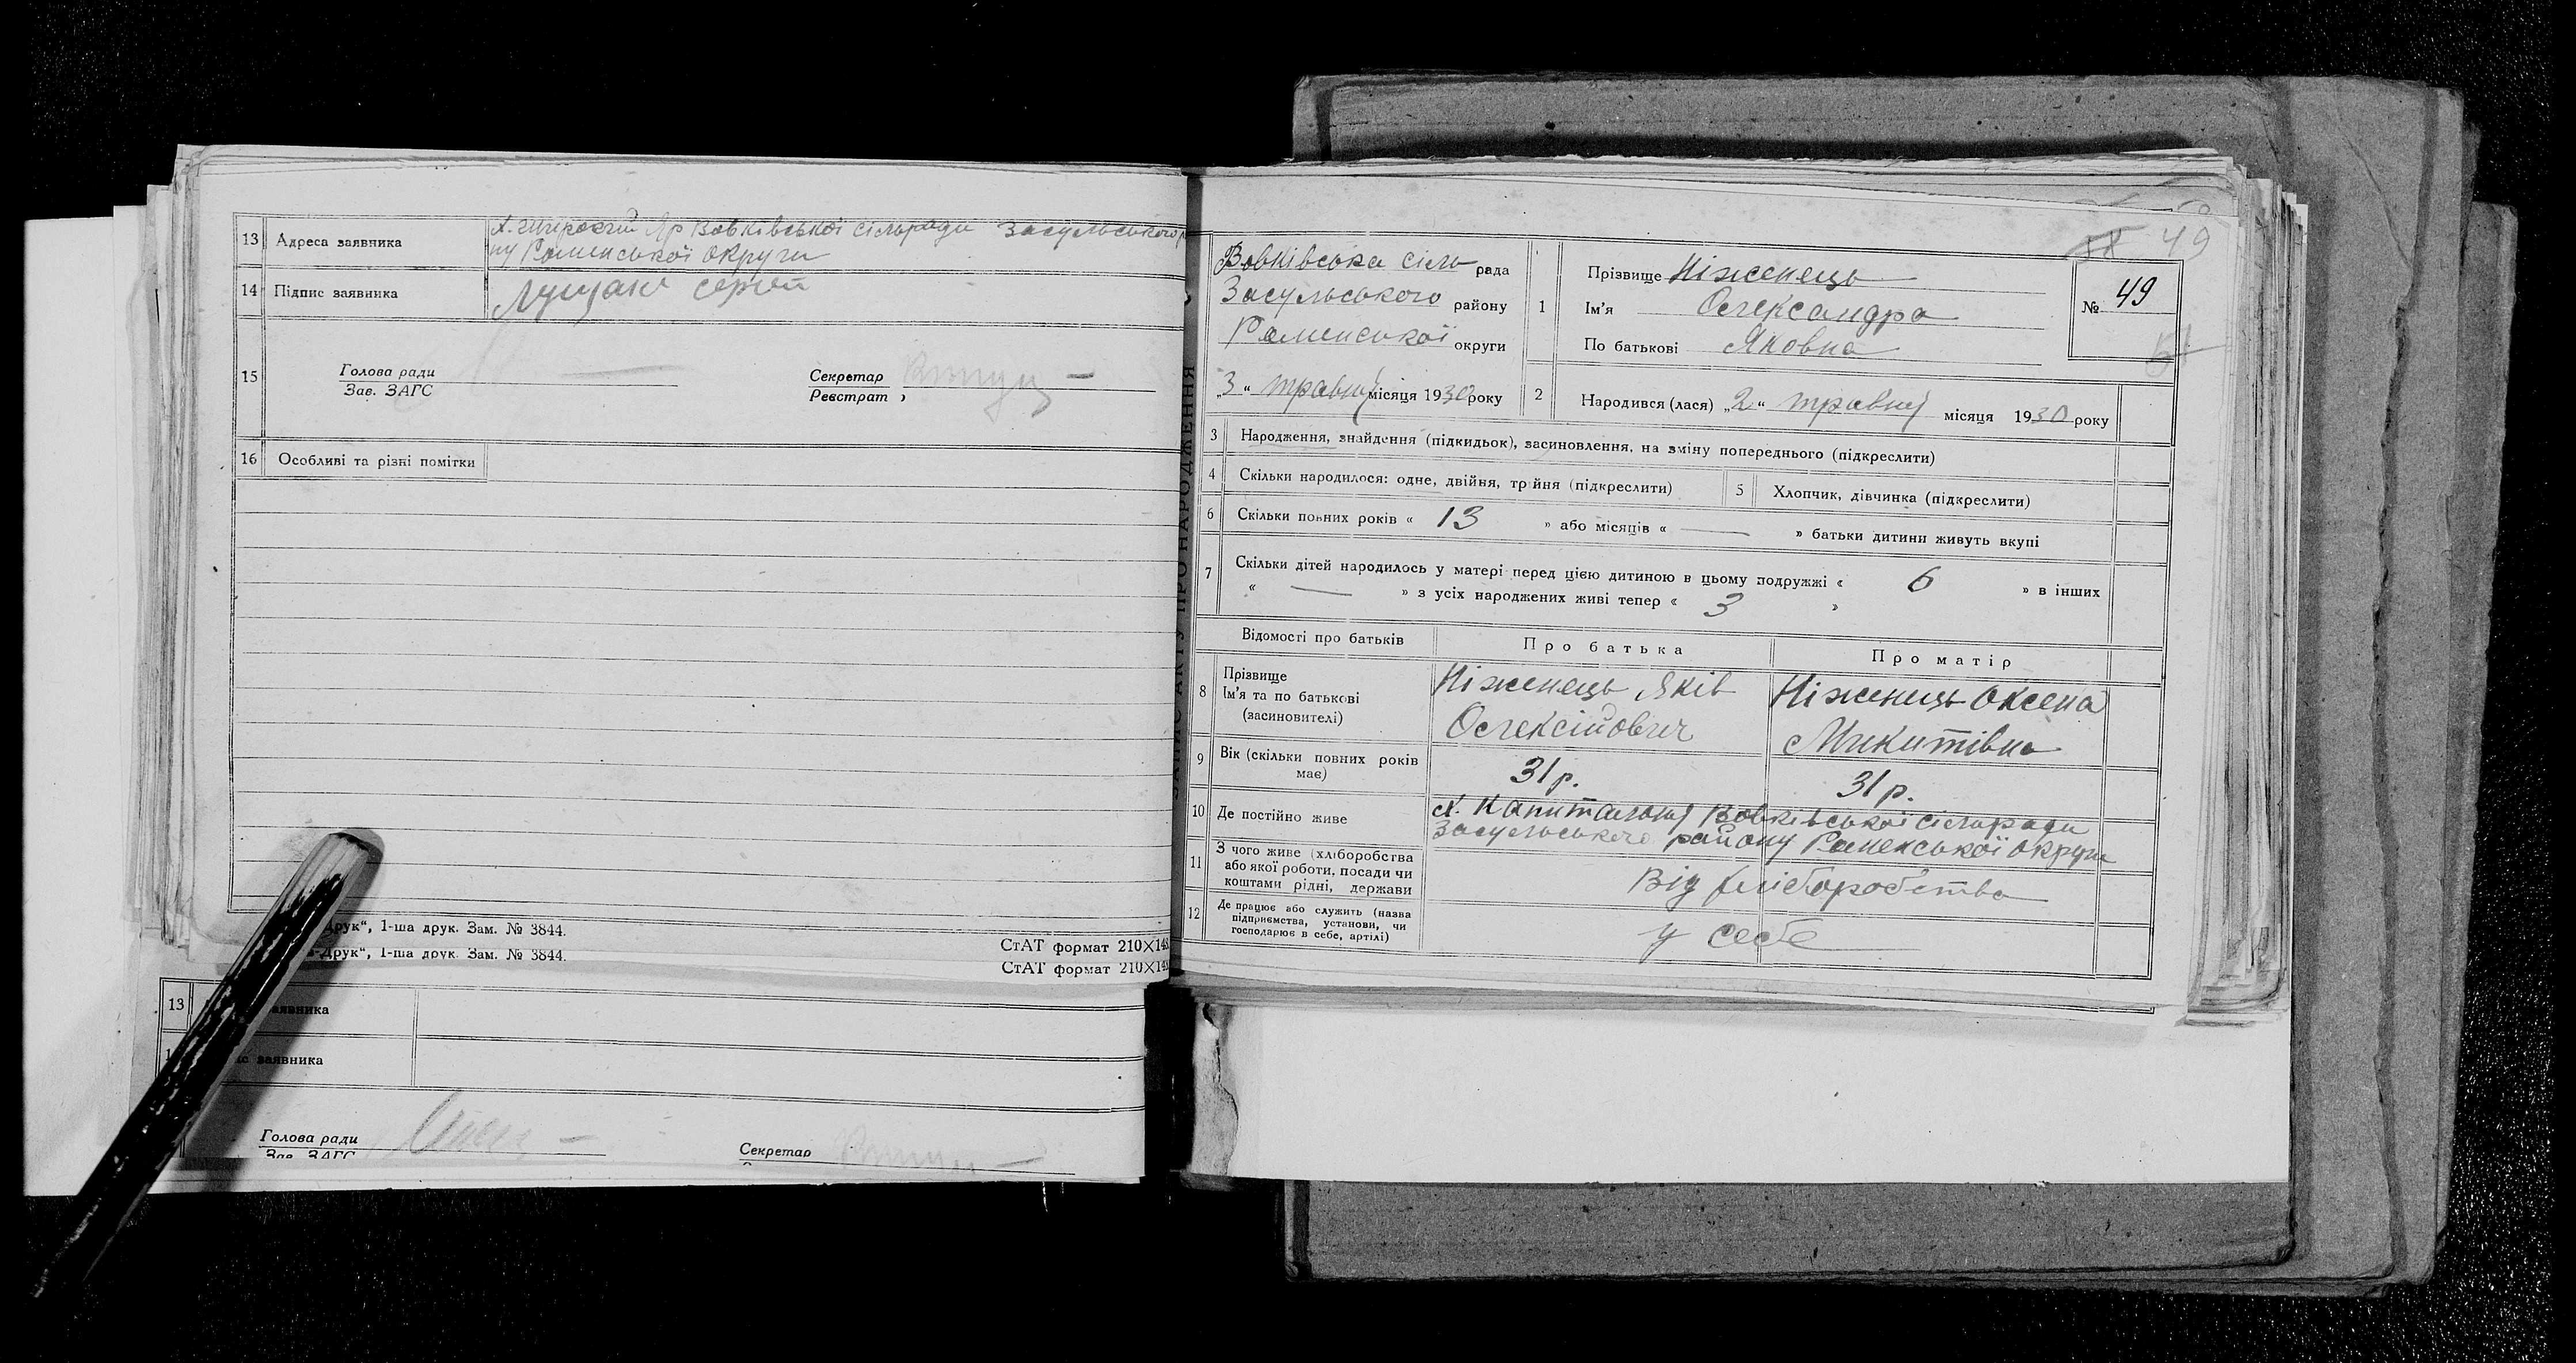 13 Адреса заявника х. Широкий Яр Вовківської сільради Засульського р
ну Роменської округи
14 Підпис заявника Лущак Сергій
15 Голова ради
Зав. ЗАГС
Секретар
Реєстрат
16 Особливі та різні помітки
Друк“, 1-ша друк. Зам. № 3844.
СтАТ формат 210×148
-Друк“, 1-ша друк. Зам. № 3844.
СтАТ формат 210×148
13 заявника
заявника
Голова ради
Зав. ЗАГС
Секретар
ЗАПИС АКТУ ПРО НАРОДЖЕННЯ
49
Вовківська сіль рада
Засульського району
Роменської округи
„3“ травня місяця 1930 року
1 Прізвище Ніженець
Ім'я Олександра
По батькові Яковна
№ 49
2 Народився (лася) „2“ травня місяця 1930 року
3 Народження, знайдення (підкидьок), засиновлення, на зміну попереднього (підкреслити)
4 Скільки народилося: одне, двійня, трійня (підкреслити)
5 Хлопчик, дівчинка (підкреслити)
6 Скільки повних років « 13 » або місяців « — » батьки дитини живуть вкупі
7 Скільки дітей народилось у матері перед цією дитиною в цьому подружжі « 6 » в інших
« — » з усіх народжених живі тепер « 3 »
Відомості про батьків Про батька Про матір
8 Прізвище
Ім'я та по батькові
(засиновителі)
Ніженець Яків
Олексійович
Ніженець Оксена
Микитівна
9 Вік (скільки повних років
має)
31 р.
31 р.
10 Де постійно живе
х. Капитальня Вовківської сільради
Засульського району Роменської округи
11 З чого живе (хліборобства
або якої роботи, посади чи
коштами рідні, держави
Від хліборобства
12 Де працює або служить (назва
підприємства, установи, чи
господарює в себе, артілі)
у себе